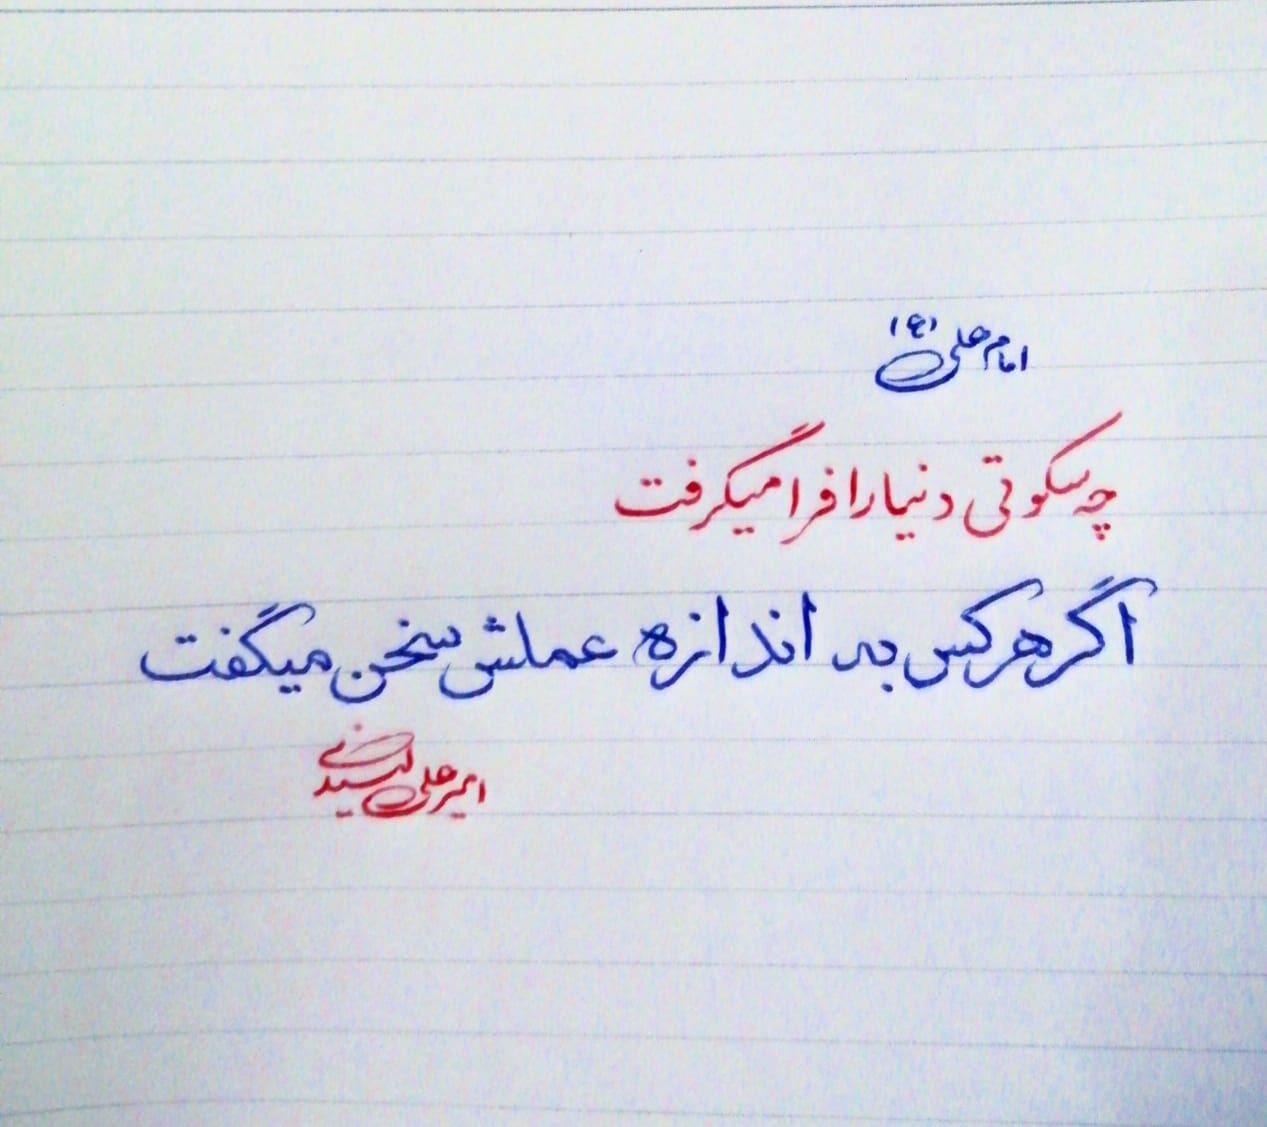 امام علی (ع)
چه سکوتی دنیا را فرا میگرفت
اگر هر کس به اندازه عملش سخن میگفت
امیر علی